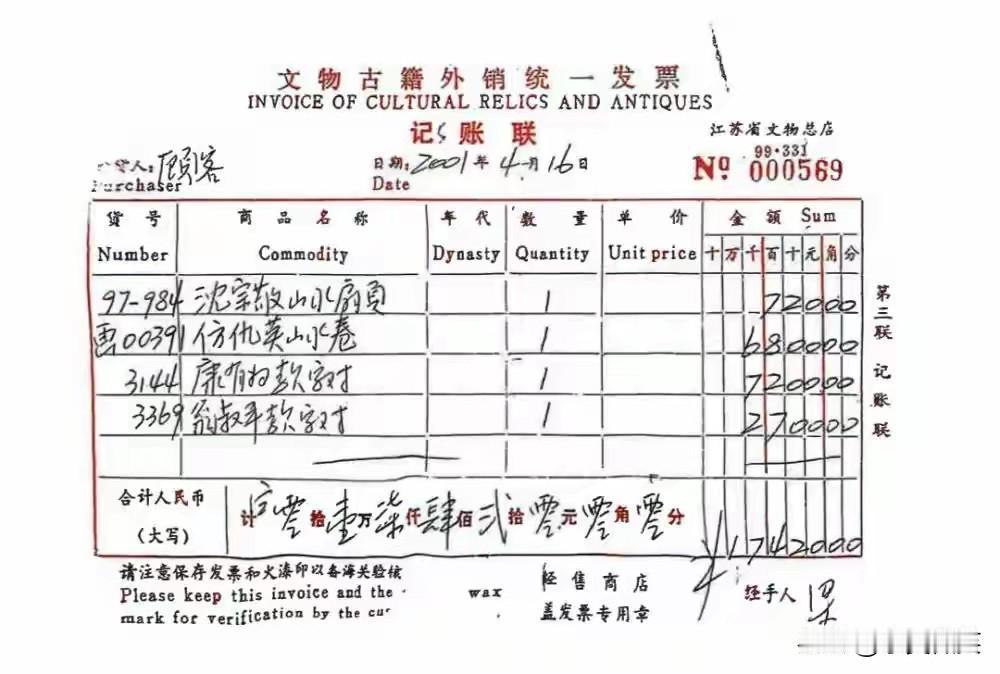 文物古籍外销统一发票
INVOICE OF CULTURAL RELICS AND ANTIQUES
记账联
江苏省文物总店
99·331
购货人：顾客 日期：2001年4月16日 Nº 000569
Purchaser Date
货号 商品名称 年代 数量 单价 金额 Sum
Number Commodity Dynasty Quantity Unit price 十万千百十元角分
97-984 沈宗敬山水扇页 1 72000
画00391 仿仇英山水卷 1 680000
3144 康有为款字对 1 720000
3369 翁叔平款字对 1 270000
合计人民币（大写） 计 零拾壹万柒仟肆佰贰拾零元零角零分 ¥1742000
第三联 记账联
请注意保存发票和火漆印以备海关验核 经售商店 经手人
Please keep this invoice and the wax 盖发票专用章
mark for verification by the